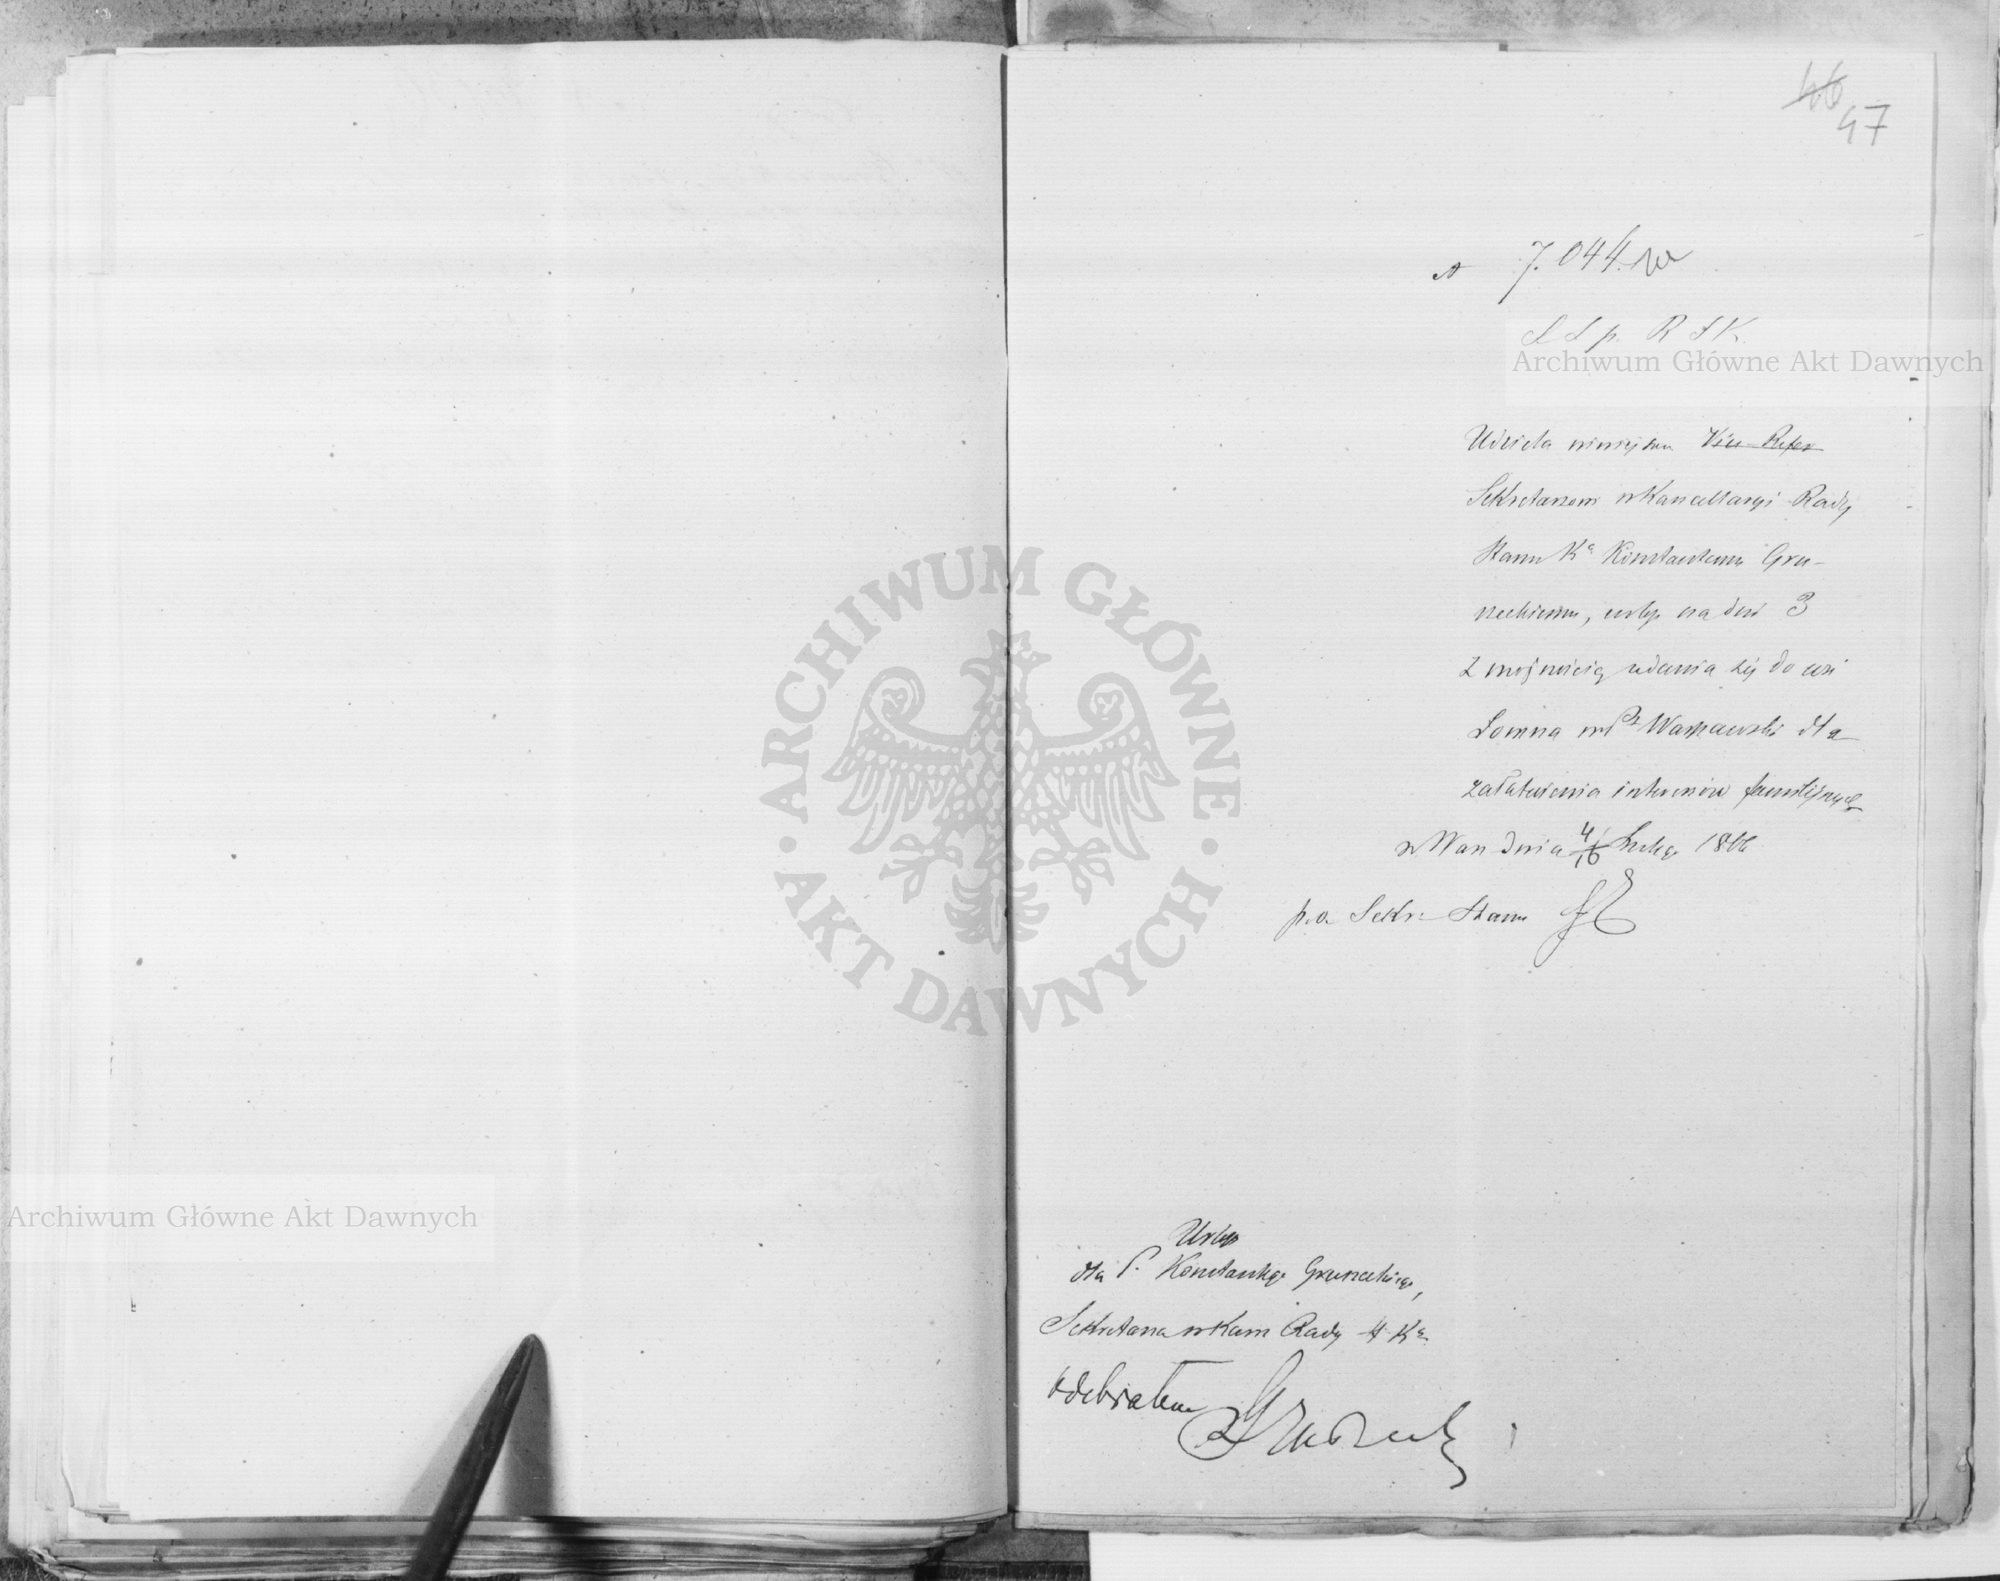 46
47
7.044
S S p. R S K.
Archiwum Główne Akt Dawnych
Udziela niniejszem Vice-Refer
Sekretarzowi w Kancellaryi Rady
Stanu Kr Konstantemu Gru-
szeckiemu, urlop na dni 3
z możnością udania się do wsi
Łomna w Warszawski dla
załatwienia interesów familijnych
w War dnia 4/16 Lutego 1866
p.o. Sekr: Stanu
ARCHIWUM GŁÓWNE
AKT DAWNYCH
Archiwum Główne Akt Dawnych
Urlop
dla P. Konstantego Gruszeckiego,
Sekretarza w Kanc Rady St. Kr
odebrałem Gruszecki